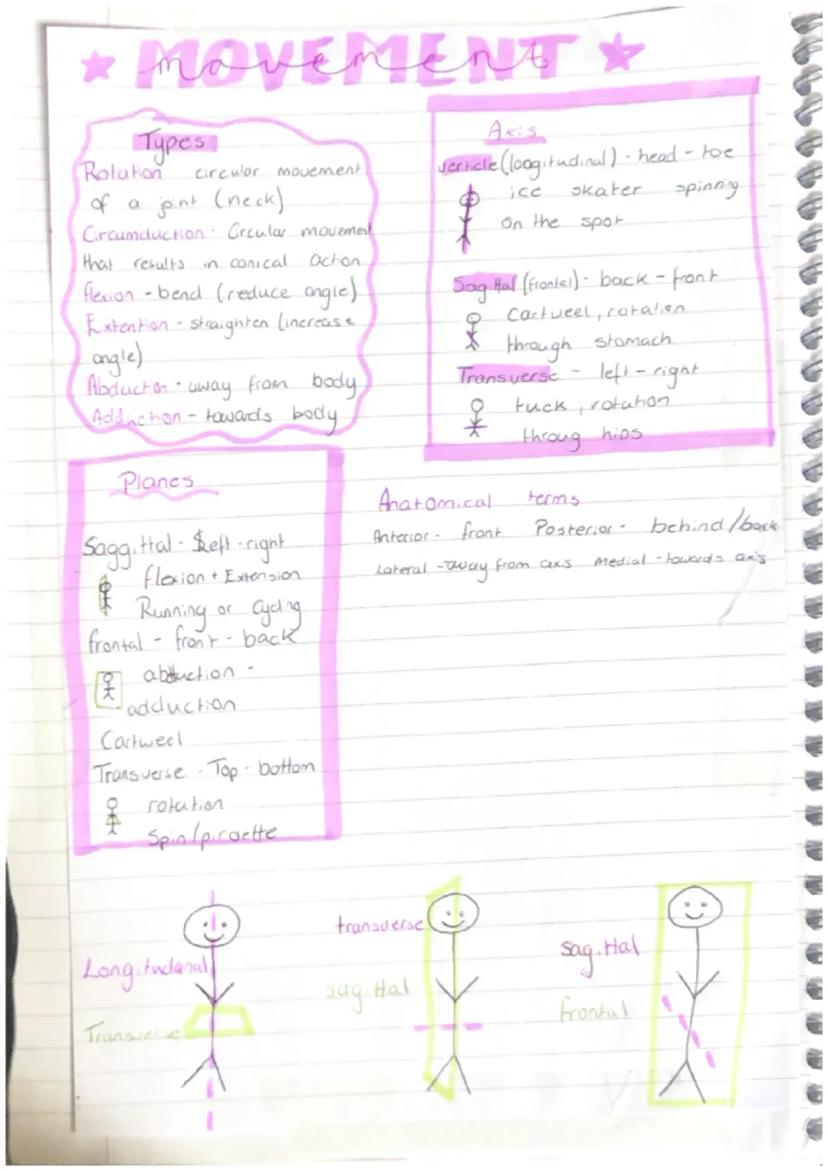 MOVEMENT
movement
Types
Rotation circular movement
of a joint (neck)
Circumduction - Circular movement
that results in conical action
flexion - bend (reduce angle)
Extention - straighten (increase
angle)
Abduction - away from body
Adduction - towards body
Axis
verticle (longitudinal) - head - toe
ice skater spinning
on the spot
Sagittal (frontal) - back - front
Cartweel, rotation
through stomach
Transverse - left - right
tuck, rotation
throug hips
Planes
Saggital - left - right
flexion + Extension
Running or Cycling
frontal - front - back
abduction -
adduction
Cartweel
Transverse - Top - bottom
rotation
Spin/piroette
Anatomical terms
Anterior - front Posterior - behind/back
Lateral - away from axis Medial - towards axis
Longitudanal
Transverse
transverse
sagittal
sagittal
frontal